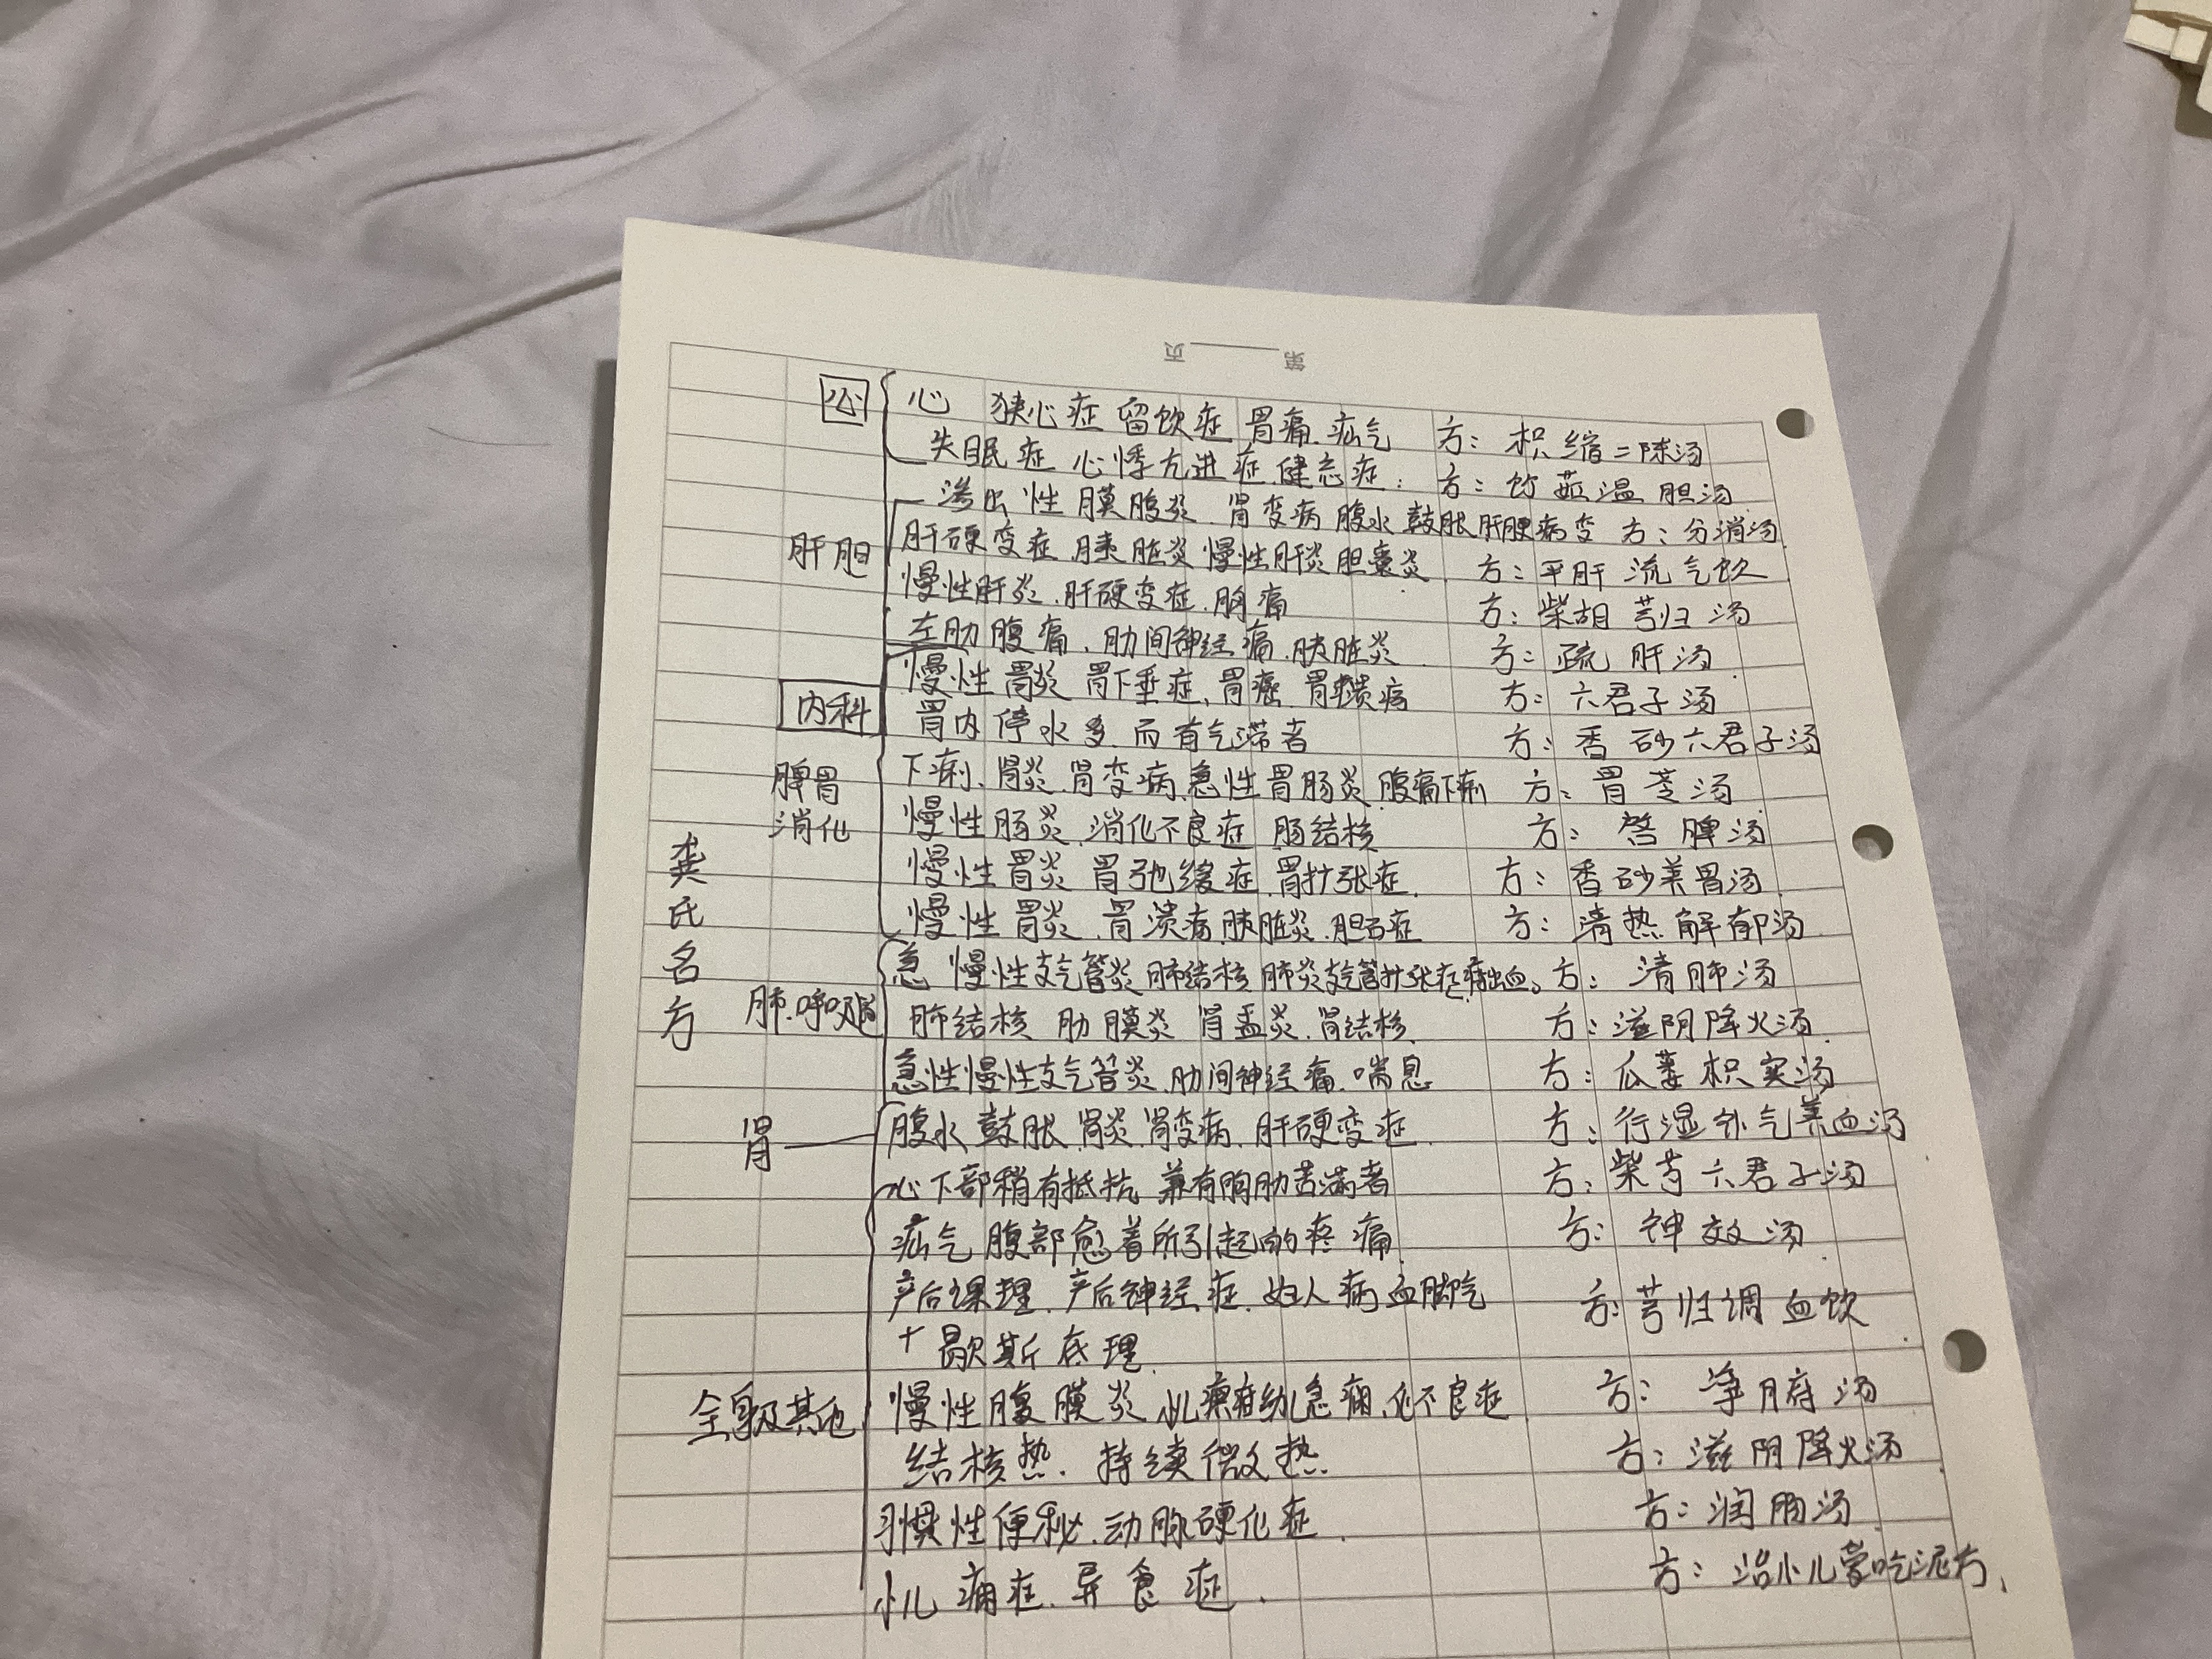 第____页
心 心 狭心症 留饮症 胃痛 疝气 方：枳缩二陈汤
失眠症 心悸亢进症 健忘症. 方：竹茹温胆汤
渗出性膜腹炎. 肾变病 腹水 鼓胀 肝胆病变 方：分消汤
肝胆 肝硬变症 胰脏炎 慢性肝炎 胆囊炎. 方：平肝流气饮
慢性肝炎. 肝硬变症. 胸痛 方：柴胡芎归汤
左肋腹痛. 肋间神经痛. 胰脏炎. 方：疏肝汤
慢性胃炎 胃下垂症. 胃癌 胃溃疡 方：六君子汤
内科 胃内停水多. 而有气滞者 方：香砂六君子汤
脾胃 下痢. 肾炎. 肾变病. 急性胃肠炎. 腹痛下痢 方：胃苓汤
消化 慢性肠炎. 消化不良症 肠结核 方：启脾汤
慢性胃炎 胃弛缓症. 胃扩张症. 方：香砂养胃汤
慢性胃炎. 胃溃疡. 胰脏炎. 胆石症 方：清热解郁汤
急 慢性支气管炎 肺结核 肺炎 支气管扩张症 出血。方：清肺汤
龚氏名方
肺.呼吸道 肺结核 肋膜炎 肾盂炎. 肾结核. 方：滋阴降火汤
急性慢性支气管炎. 肋间神经痛. 喘息 方：瓜蒌枳实汤
肾 腹水 鼓胀. 肾炎. 肾变病. 肝硬变症. 方：行湿补气养血汤
心下部稍有抵抗 兼有胸肋苦满者 方：柴芍六君子汤
疝气 腹部愈着所引起的疼痛. 方：神效汤
产后理. 产后神经症. 妇人病 血脚气 方：芎归调血饮
+歇斯底理.
全身及其他 慢性腹膜炎. 小儿 幼儿急痫. 化不良症. 方：净府汤
结核热. 持续微热. 方：滋阴降火汤
习惯性便秘. 动脉硬化症. 方：润肠汤
小儿 症. 异食症. 方：治小儿爱吃泥方.